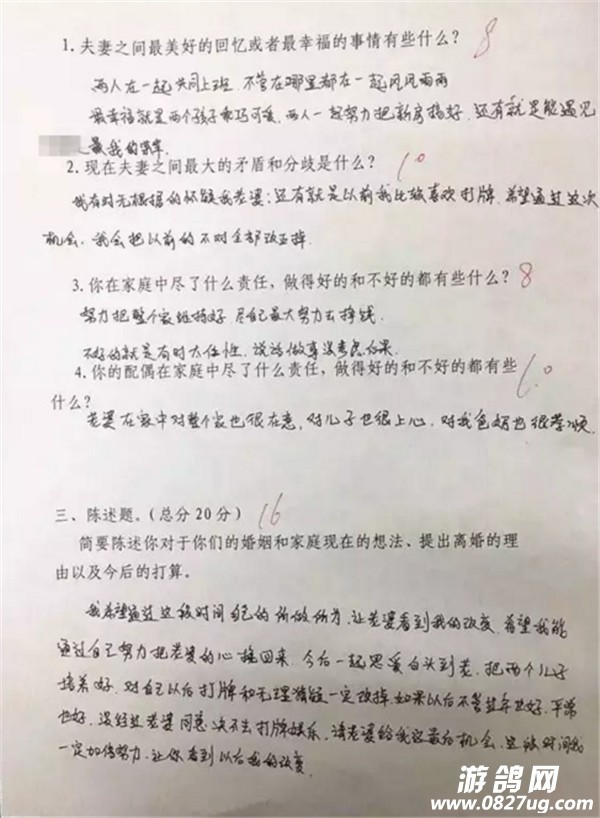 1.夫妻之间最美好的回忆或者最幸福的事情有些什么? 8
两人在一起共同上班,不管在哪里都在一起风风雨雨
最幸福就是两个孩子乖巧可爱,两人一起努力把新房搞好,还有就是能遇见
最我的
2.现在夫妻之间最大的矛盾和分歧是什么? 10
我有时无根据的怀疑我老婆;还有就是以前我比较喜欢打牌,希望通过这次
机会,我会把以前的不对全部改正掉.
3.你在家庭中尽了什么责任,做得好的和不好的都有些什么? 8
努力把整个家维持好,尽自己最大努力去挣钱.
不好的就是有时太任性,说话做事没考虑后果.
4.你的配偶在家庭中尽了什么责任,做得好的和不好的都有些 10
什么?
老婆在家中对整个家也很在意,对儿子也很上心,对我爸妈也很孝顺.
三、陈述题。(总分20分) 16
简要陈述你对于你们的婚姻和家庭现在的想法、提出离婚的理
由以及今后的打算。
我希望通过这段时间自己的所做所为,让老婆看到我的改变,希望我能
通过自己努力把老婆的心挽回来,今后一起恩爱白头到老,把两个儿子
培养好,对自己以后打牌和无理猜疑一定改掉,如果以后不管过年也好,平常
也好,没经过老婆同意决不去打牌娱乐,请老婆给我这最后机会,这段时间我
一定加倍努力,让你看到以后我的改变.
游鸽网
www.0827ug.com